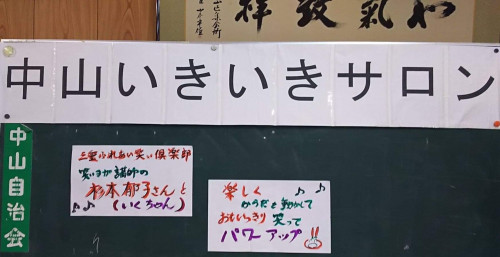 和氣致祥
中山いきいきサロン
中山自治会
三里ふれあい笑い倶楽部
笑いヨガ講師の
杉本郁子さんと
(いくちゃん)
楽しく
からだを動かして
おもいっきり笑って
パワーアップ